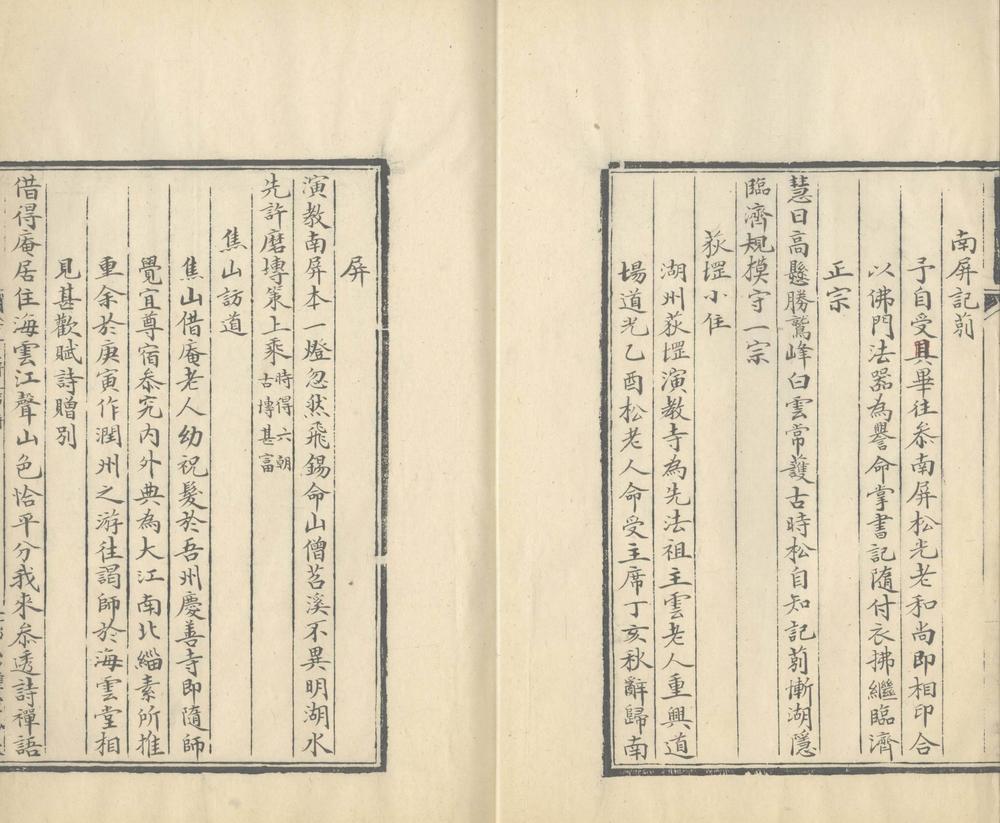 南屏記莂
予自受具畢往叅南屏松光老和尚即相印合
以佛門法器為譽命掌書記隨付衣拂繼臨濟
正宗
慧日高懸勝鷲峰白雲常護古時松自知記莂慚湖隱
臨濟規模守一宗
荻堽小住
湖州荻堽演教寺為先法祖主雲老人重興道
場道光乙酉松老人命受主席丁亥秋辭歸南
屏
演教南屏本一燈忽然飛錫命山僧苕溪不異明湖水
先許磨塼策上乘時得六朝古塼甚富
焦山訪道
焦山借庵老人幼祝髮於吾州慶善寺即隨師
覺宜尊宿叅究内外典為大江南北緇素所推
重余於庚寅作潤州之游往謁師於海雲堂相
見甚歡賦詩贈別
借得庵居住海雲江聲山色恰平分我來叅透詩禪語